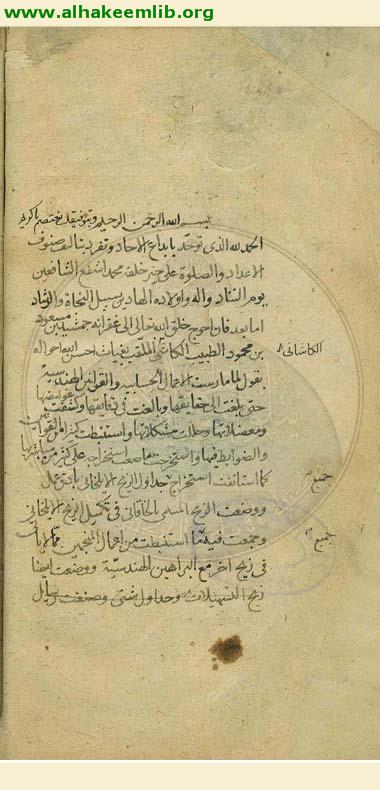 www.alhakeemlib.org
بسم الله الرحمن الرحيم وبتوفيقه نختتم يا كريم
الحمد لله الذى توحد بابداع الاحاد وتفرد بتاليف صنوف
الاعداد والصلوة على خير خلقه محمد اشفع الشافعين
يوم التناد واله واولاده الهادين سبيل النجاة والرشاد
اما بعد فان احوج خلق الله تعالى الى غفرانه جمشيد بن مسعود
بن محمود الطبيب الكاشى الملقب بغياث احسن الله احواله
الكاشانى
يقول لما مارست الاعمال الحسابية والقوانين الهندسية
حتى بلغت الى حقايقها وبالغت فى دقايقها وكشفت غوامضها
ومعضلاتها وحللت مشكلاتها واستنبطت كثيرا من القوانين
والضوابط فيها واستخرجت ما صعب استخراجه على كثير من
كما استانفت استخراج جداول الزيج الايلخانى بادق عمل
جميع
ووضعت الزيج المسمى بالخاقانى فى تكميل الزيج الايلخانى
وجمعت فيه ما استنبطت من اعمال المنجمين مما لا ياتى
جميع
فى زيج اخر مع البراهين الهندسية ووضعت ايضا
زيج التسهيلات وجداول شتى وصنفت رسايل